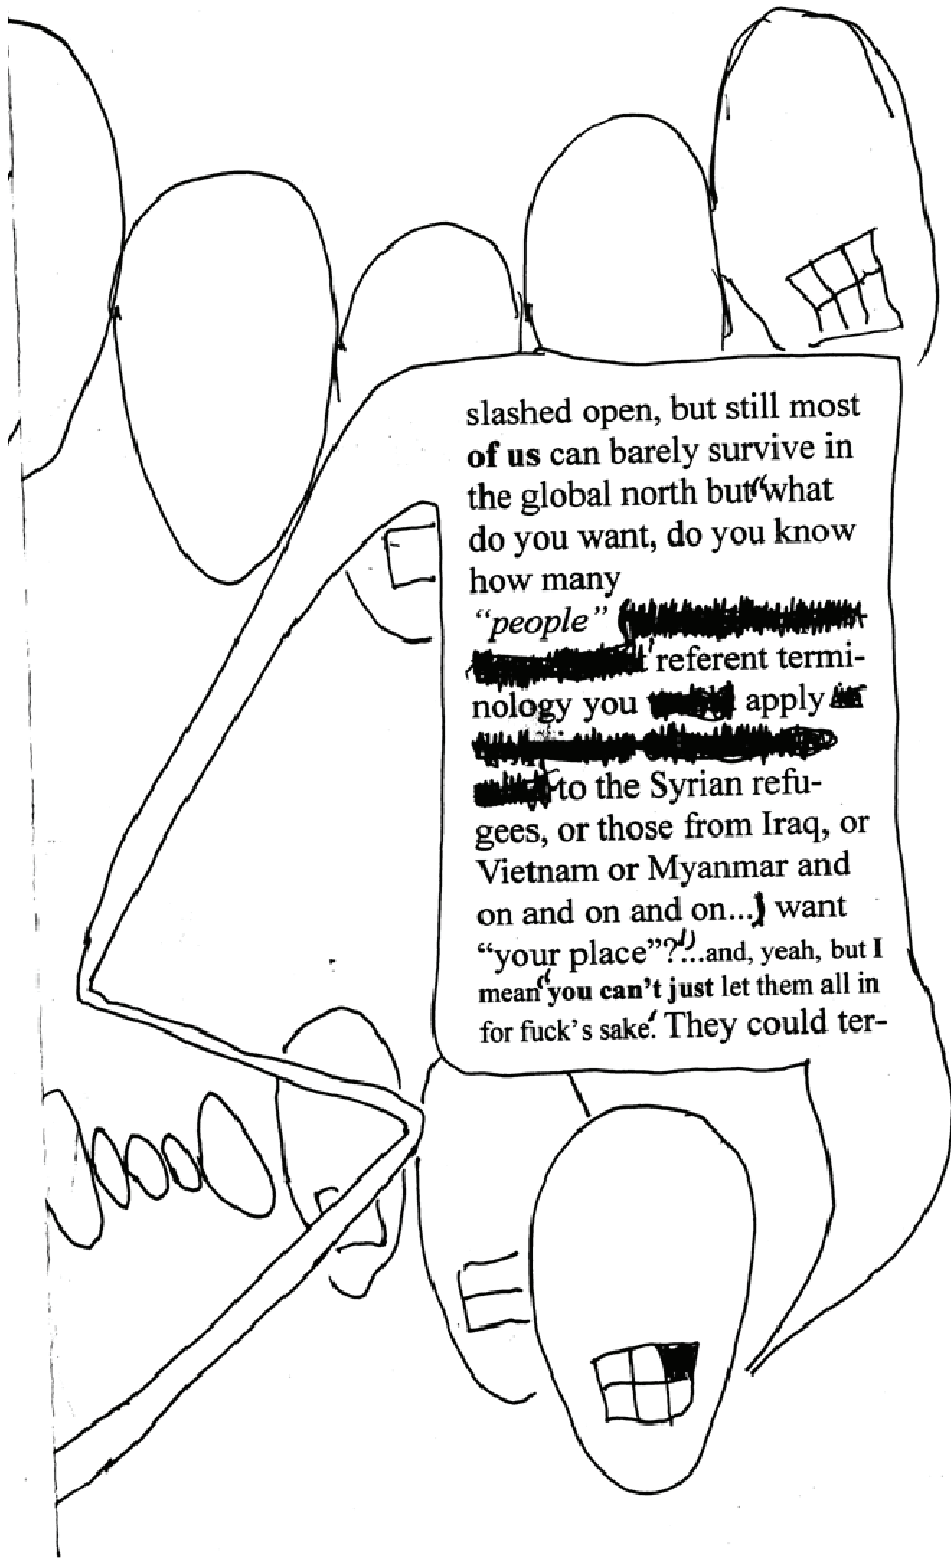 slashed open, but still most
of us can barely survive in
the global north but “what
do you want, do you know
how many
“people”
referent termi-
nology you apply
to the Syrian refu-
gees, or those from Iraq, or
Vietnam or Myanmar and
on and on and on...) want
“your place”?”...and, yeah, but I
mean “you can’t just let them all in
for fuck’s sake.’ They could ter-